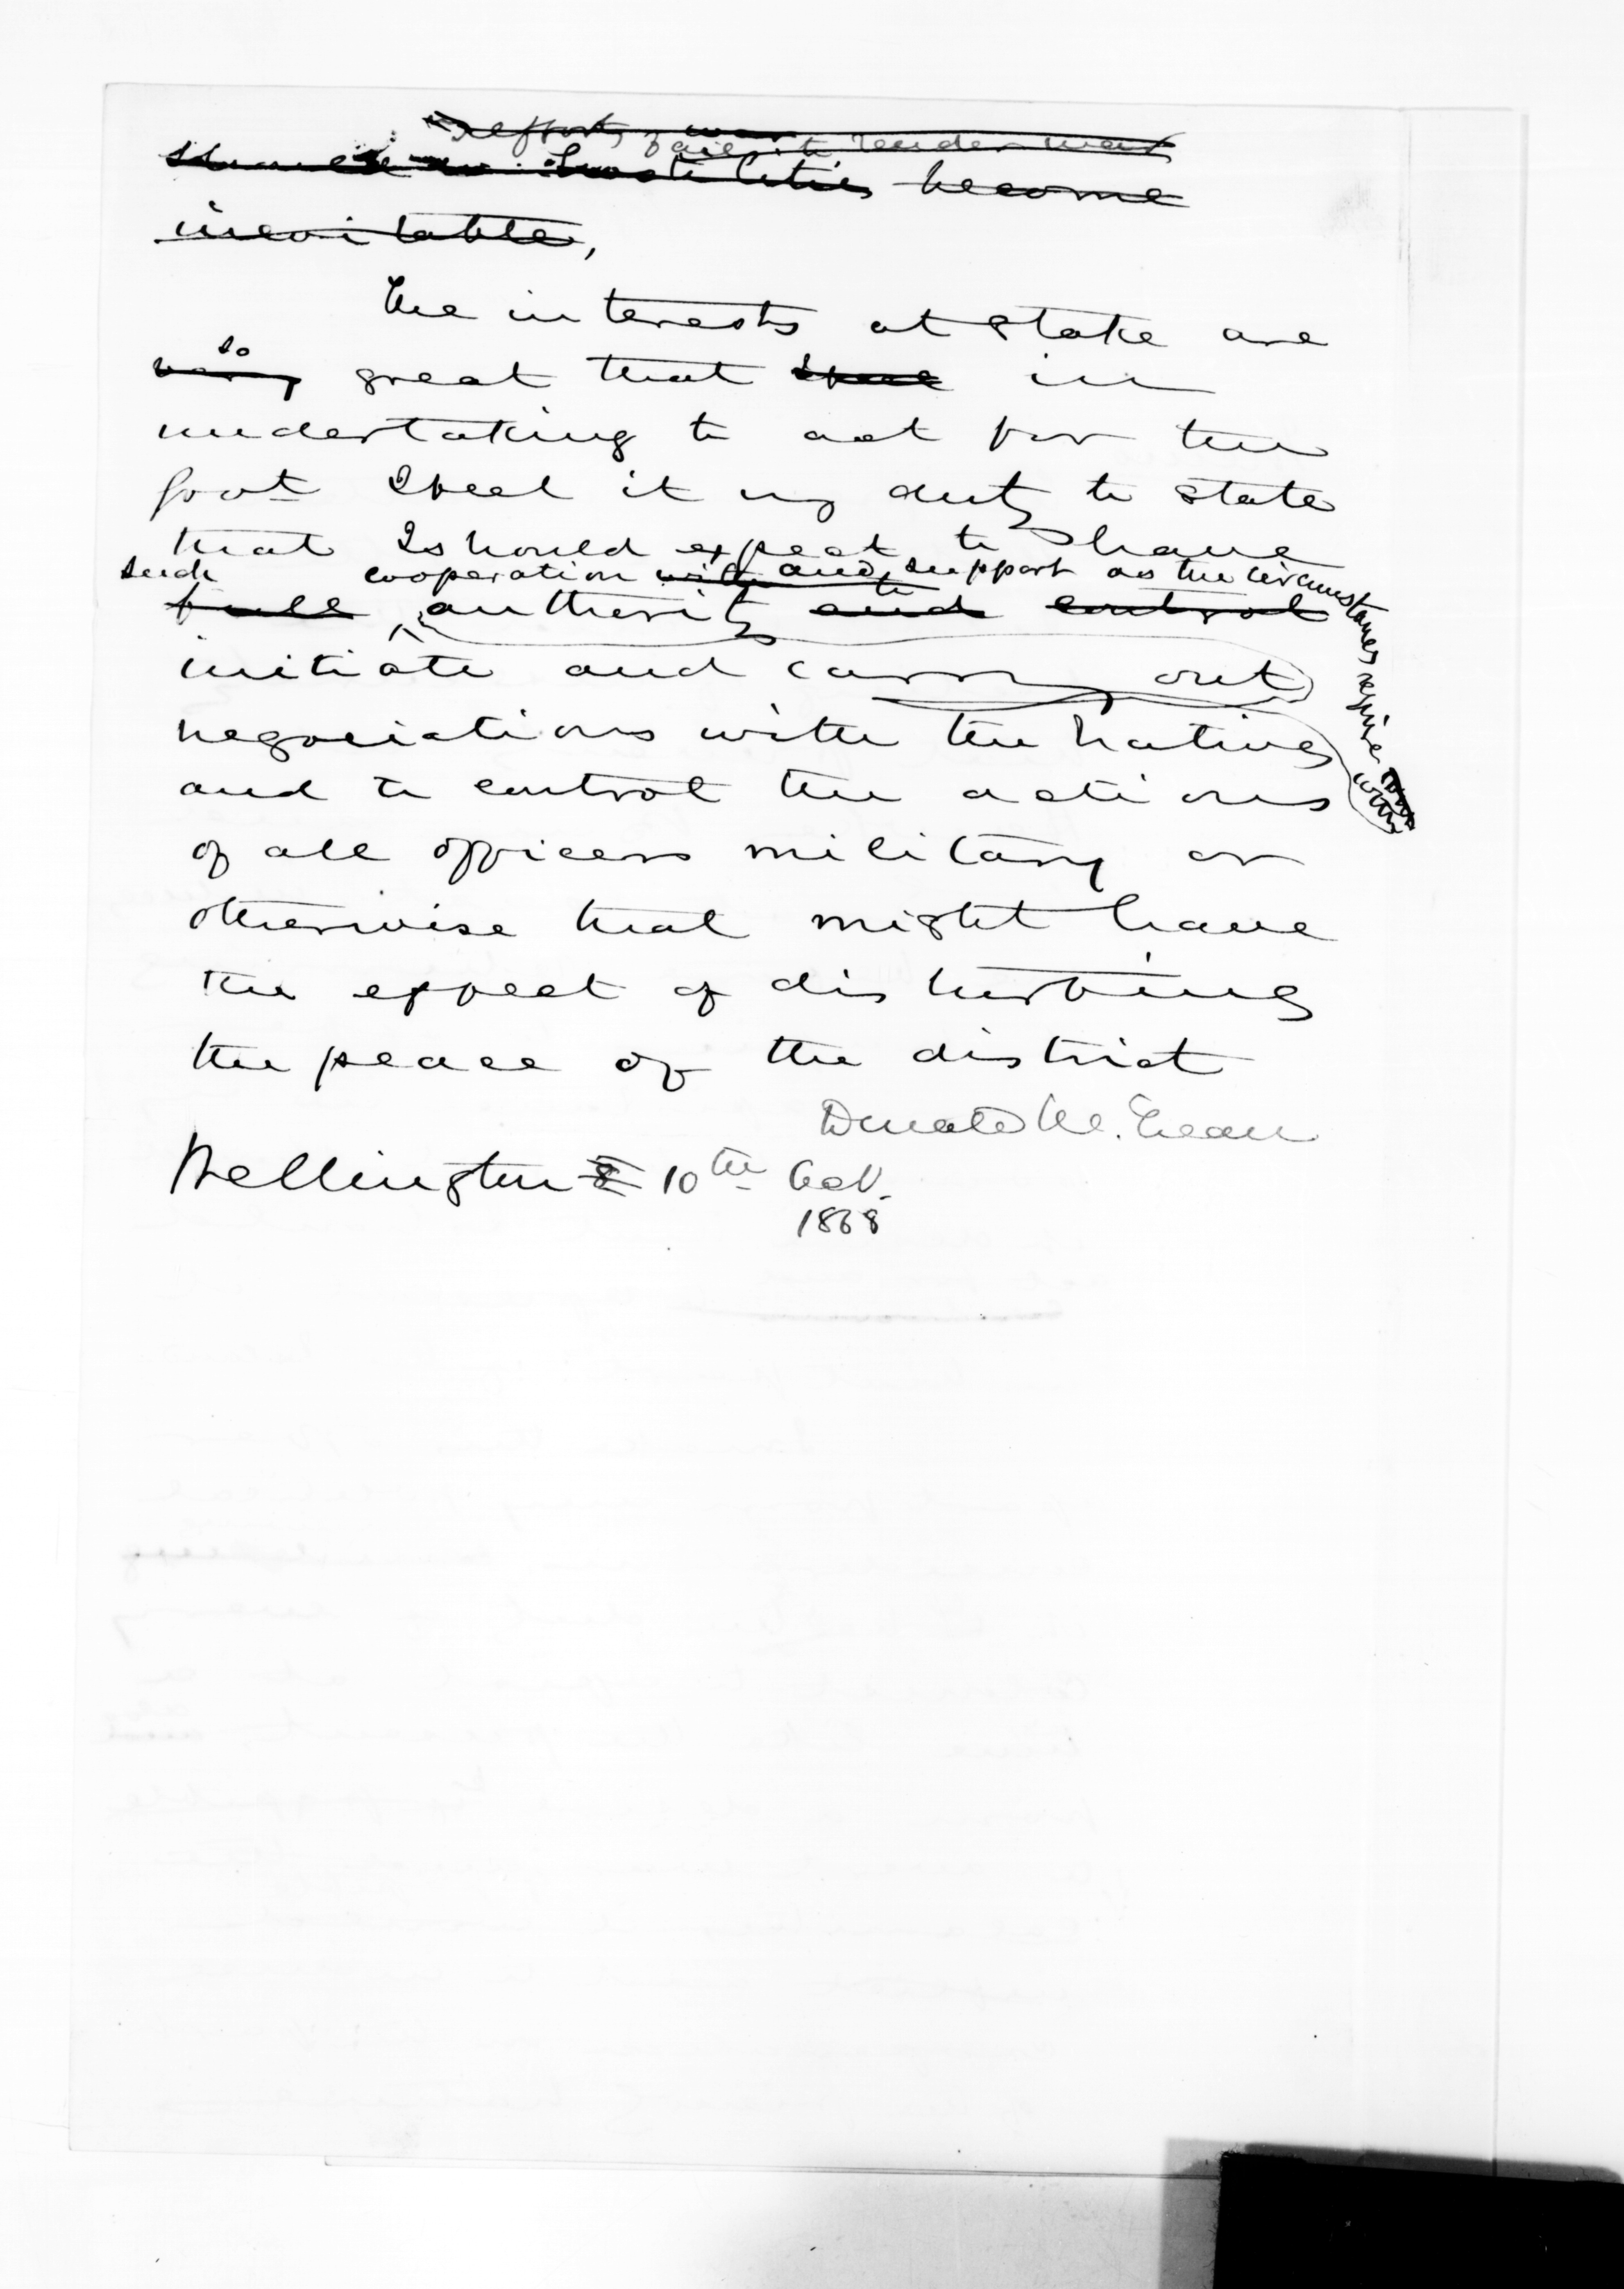 efforts, fail to render war
hostilities become
inevitable,
The interests at stake are
so
very great that I feel in
undertaking to act for the
Govt I feel it my duty to state
that I should expect to have
such cooperation with and support as the circumstances require with
full authority to and control
initiate and carry out
negociations with the natives
and to control the actions
of all officers military or
otherwise that might have
the effect of disturbing
the peace of the district
Donald McLean
Wellington 10th Oct.
1868